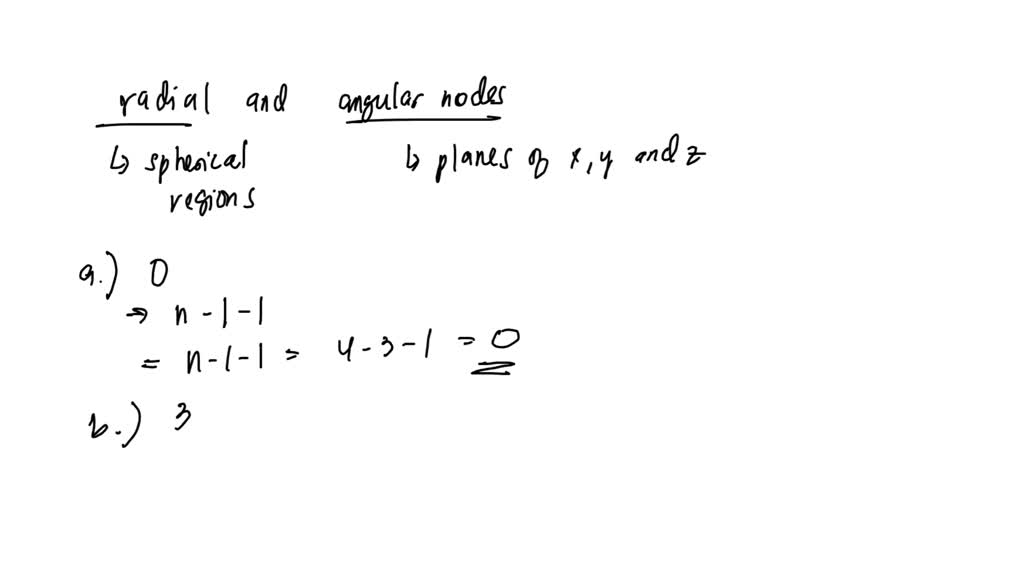 radial and angular nodes
↳ spherical regions
↳ planes of x, y and z
a.) 0
→ n - l - 1
= n - l - 1 = 4 - 3 - 1 = 0
b.) 3